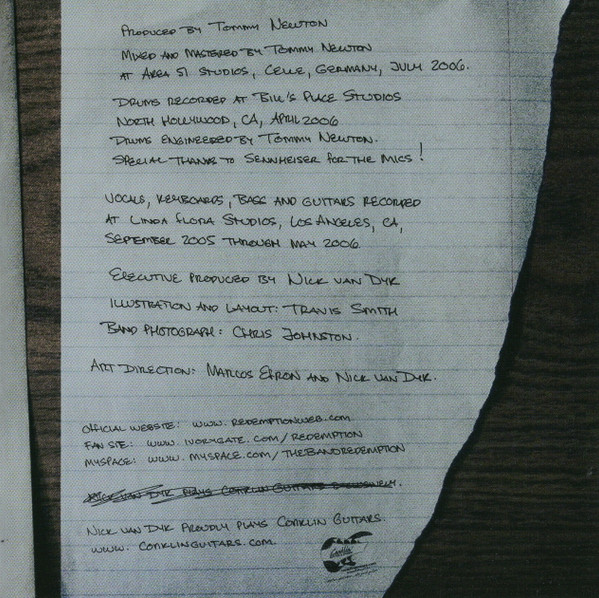 Produced by Tommy Newton
Mixed and Mastered by Tommy Newton
at Area 51 Studios, Celle, Germany, July 2006.
Drums recorded at Bill's Place Studios
North Hollywood, CA, April 2006
Drums engineered by Tommy Newton.
Special thanks to Sennheiser for the mics!
Vocals, keyboards, bass and guitars recorded
at Linda Flora Studios, Los Angeles, CA,
September 2005 through May 2006
Executive produced by Nick van Dyk
Illustration and layout: Travis Smith
Band photograph: Chris Johnston.
Art direction: Marcos Efron and Nick van Dyk.
Official website: www.redemptionweb.com
Fan site: www.ivorygate.com/redemption
Myspace: www.myspace.com/thebandredemption
Nick van Dyk plays Conklin Guitars exclusively.
Nick van Dyk proudly plays Conklin Guitars.
www.conklinguitars.com
Conklin